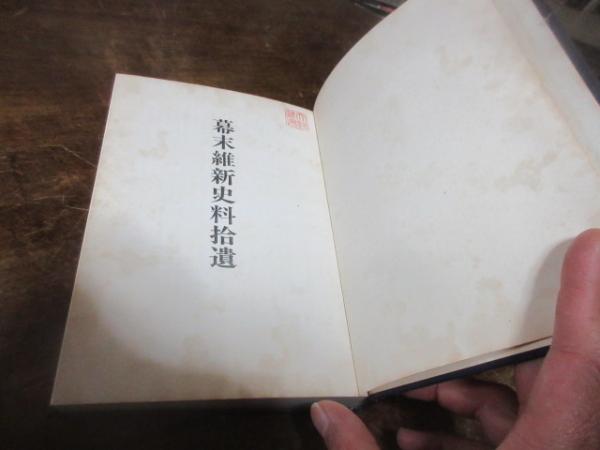 幕末維新史料拾遺